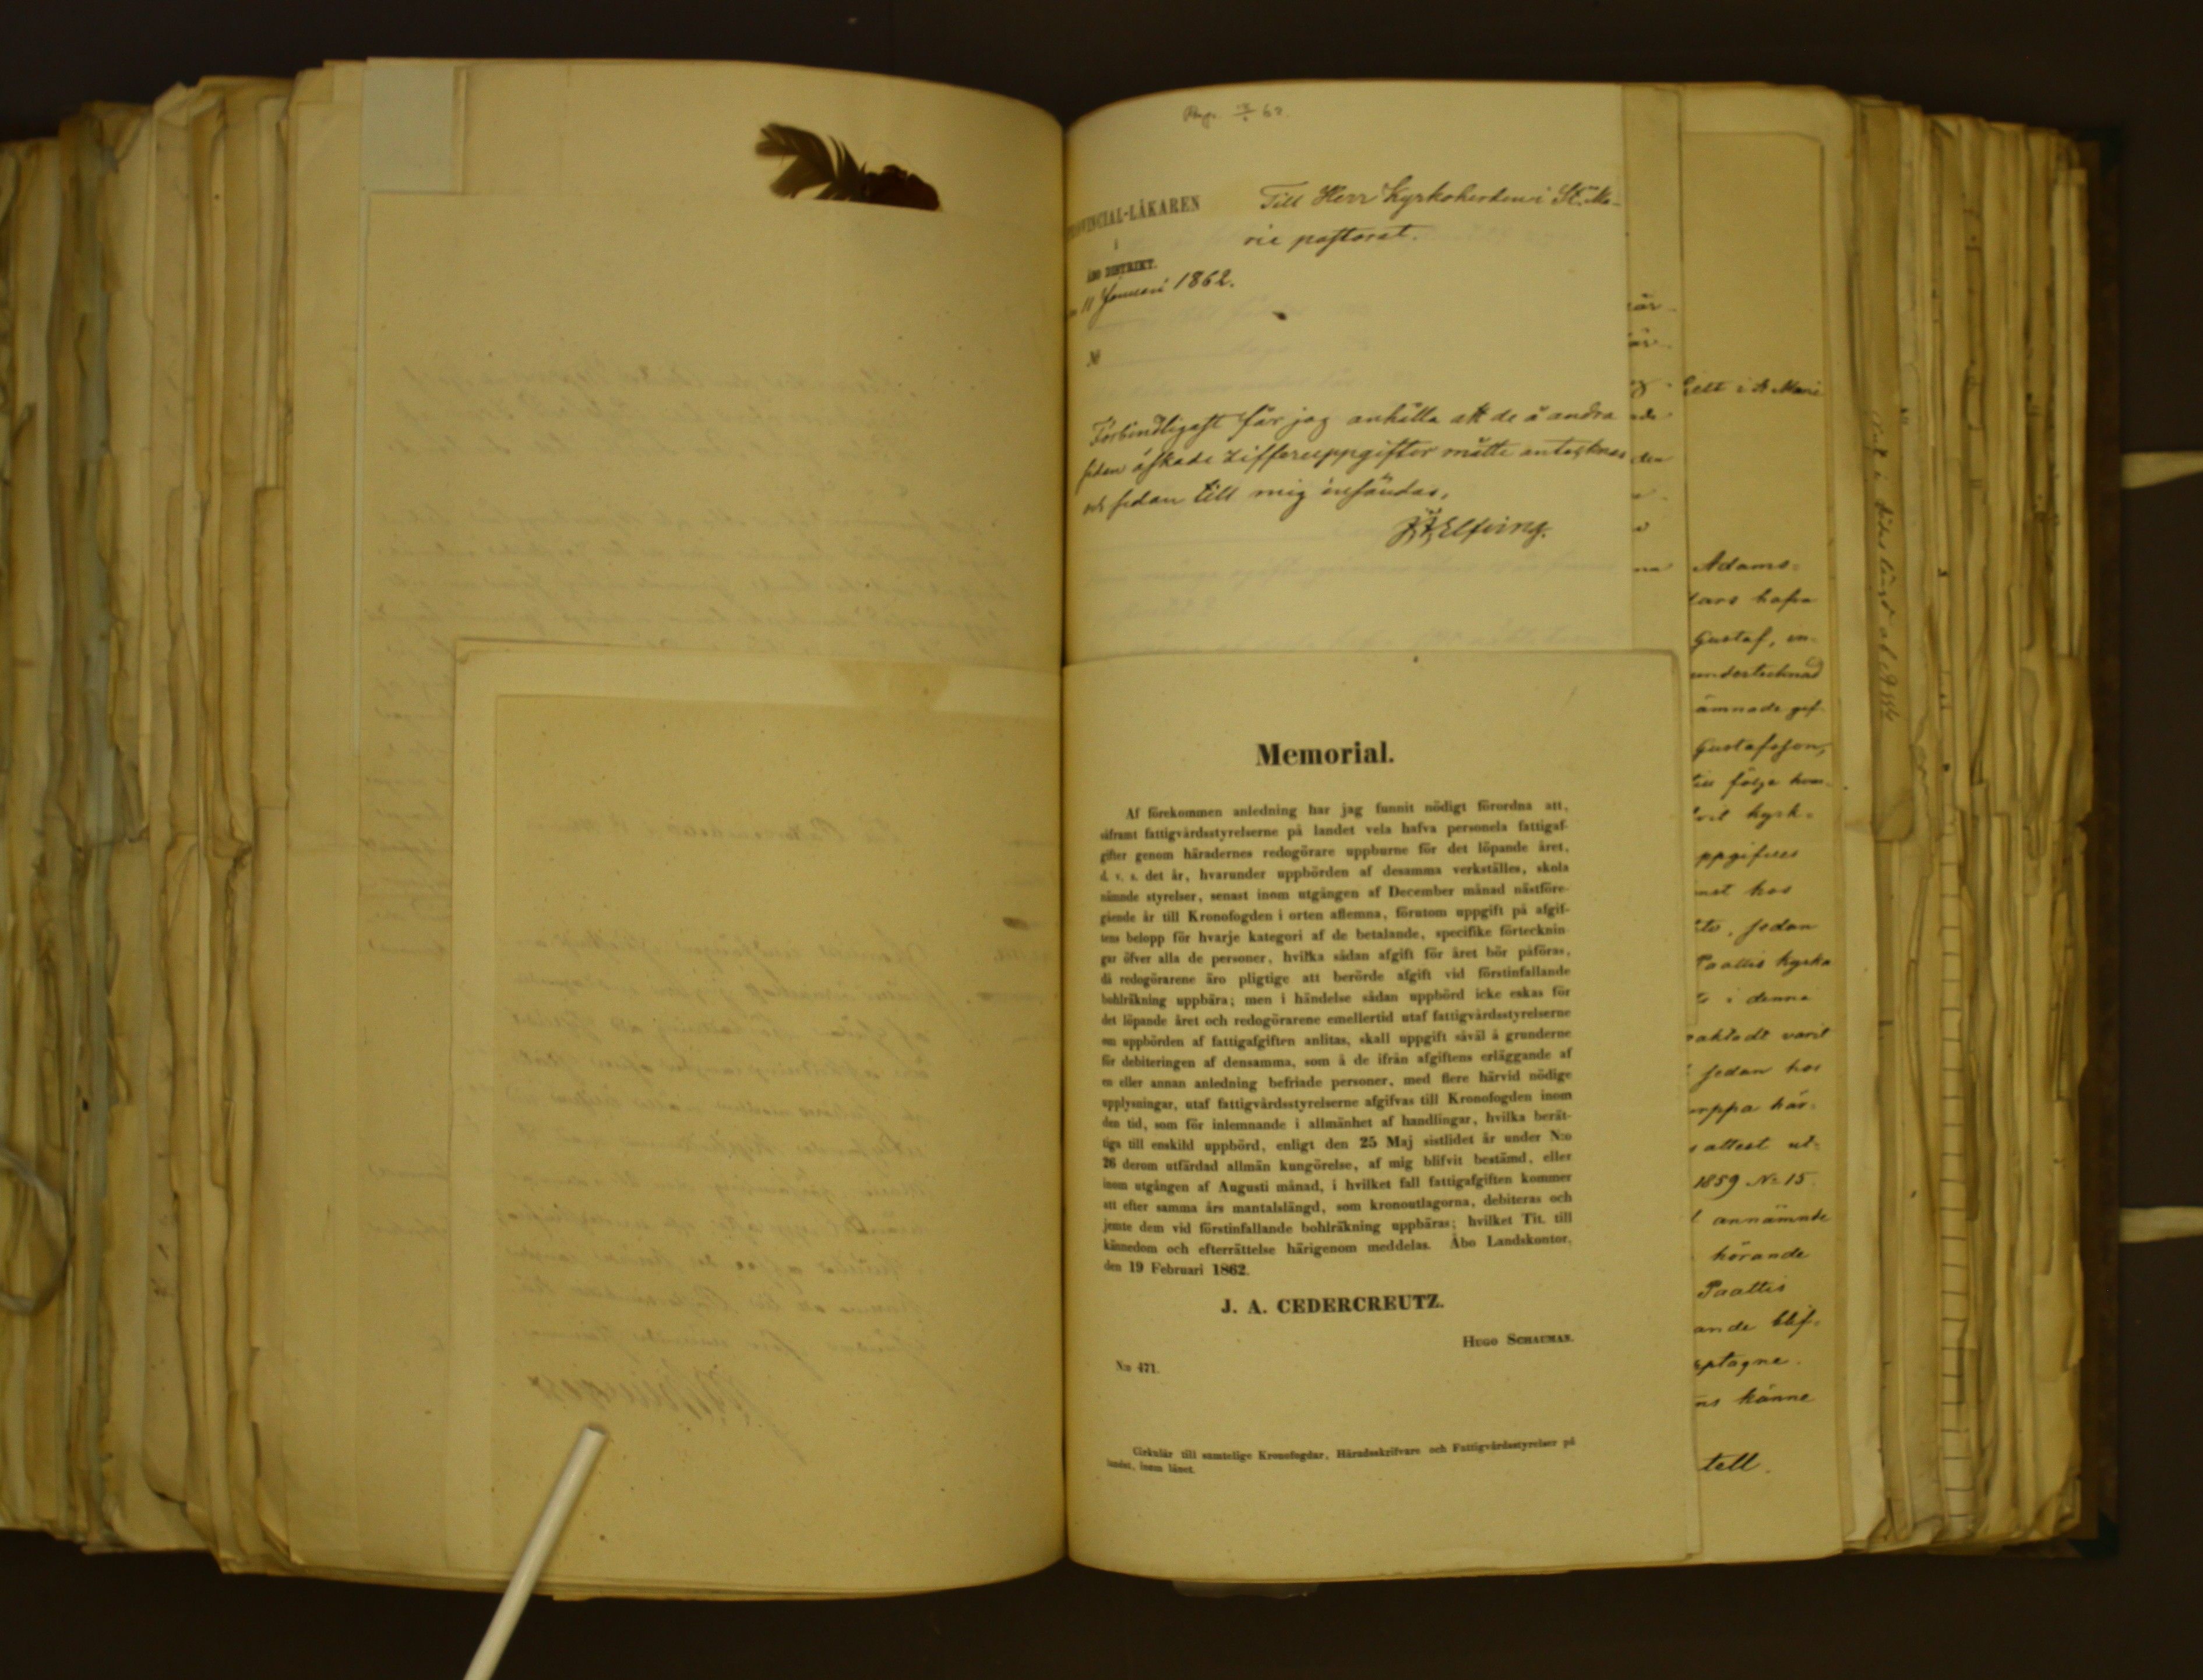 PROVINCIAL-LÄKAREN
i
ÅBO DISTRIKT.
11 Januari 1862.
№
Till Herr Kyrkoherden i St. Ma-
rie pastorat.
Förbindligast får jag anhålla att de å andra
sidan äskade zifferuppgifter måtte antecknas
och sedan till mig insändas.
Elfving.
Memorial.
Af förekommen anledning har jag funnit nödigt förordna att,
såframt fattigvårdsstyrelserne på landet vela hafva personela fattigaf-
gifter genom häradernes redogörare uppburne för det löpande året,
d. v. s. det år, hvarunder uppbörden af desamma verkställes, skola
nämnde styrelser, senast inom utgången af December månad nästföre-
gående år till Kronofogden i orten aflemna, förutom uppgift på afgif-
tens belopp för hvarje kategori af de betalande, specifike förtecknin-
gar öfver alla de personer, hvilka sådan afgift för året bör påföras,
då redogörarene äro pligtige att berörde afgift vid förstinfallande
bohlräkning uppbära; men i händelse sådan uppbörd icke eskas för
det löpande året och redogörarene emellertid utaf fattigvårdsstyrelserne
om uppbörden af fattigafgiften anlitas, skall uppgift såväl å grunderne
för debiteringen af densamma, som å de ifrån afgiftens erläggande af
en eller annan anledning befriade personer, med flere härvid nödige
upplysningar, utaf fattigvårdsstyrelserne afgifvas till Kronofogden inom
den tid, som för inlemnande i allmänhet af handlingar, hvilka berät-
tiga till enskild uppbörd, enligt den 25 Maj sistlidet år under N:o
26 derom utfärdad allmän kungörelse, af mig blifvit bestämd, eller
inom utgången af Augusti månad, i hvilket fall fattigafgiften kommer
att efter samma års mantalslängd, som kronoutlagorna, debiteras och
jemte dem vid förstinfallande bohlräkning uppbäras; hvilket Tit. till
kännedom och efterrättelse härigenom meddelas. Åbo Landskontor,
den 19 Februari 1862.
J. A. CEDERCREUTZ.
HUGO SCHAUMAN.
N:o 471.
Cirkulär till samtelige Kronofogdar, Häradsskrifvare och Fattigvårdsstyrelser på
landet, inom länet.
Adams-
lars hafva
Gustaf, en-
undertecknad
ämnade gif-
Gustafsson,
följe
kyrk-
ppgifves
hos
sedan
Paattis kyrka
i denna
aktadt varit
sedan hos
här-
attest ut-
1859 No 15.
annämnde
hörande
Paattis
ande blif-
ptagne.
känne
tell.